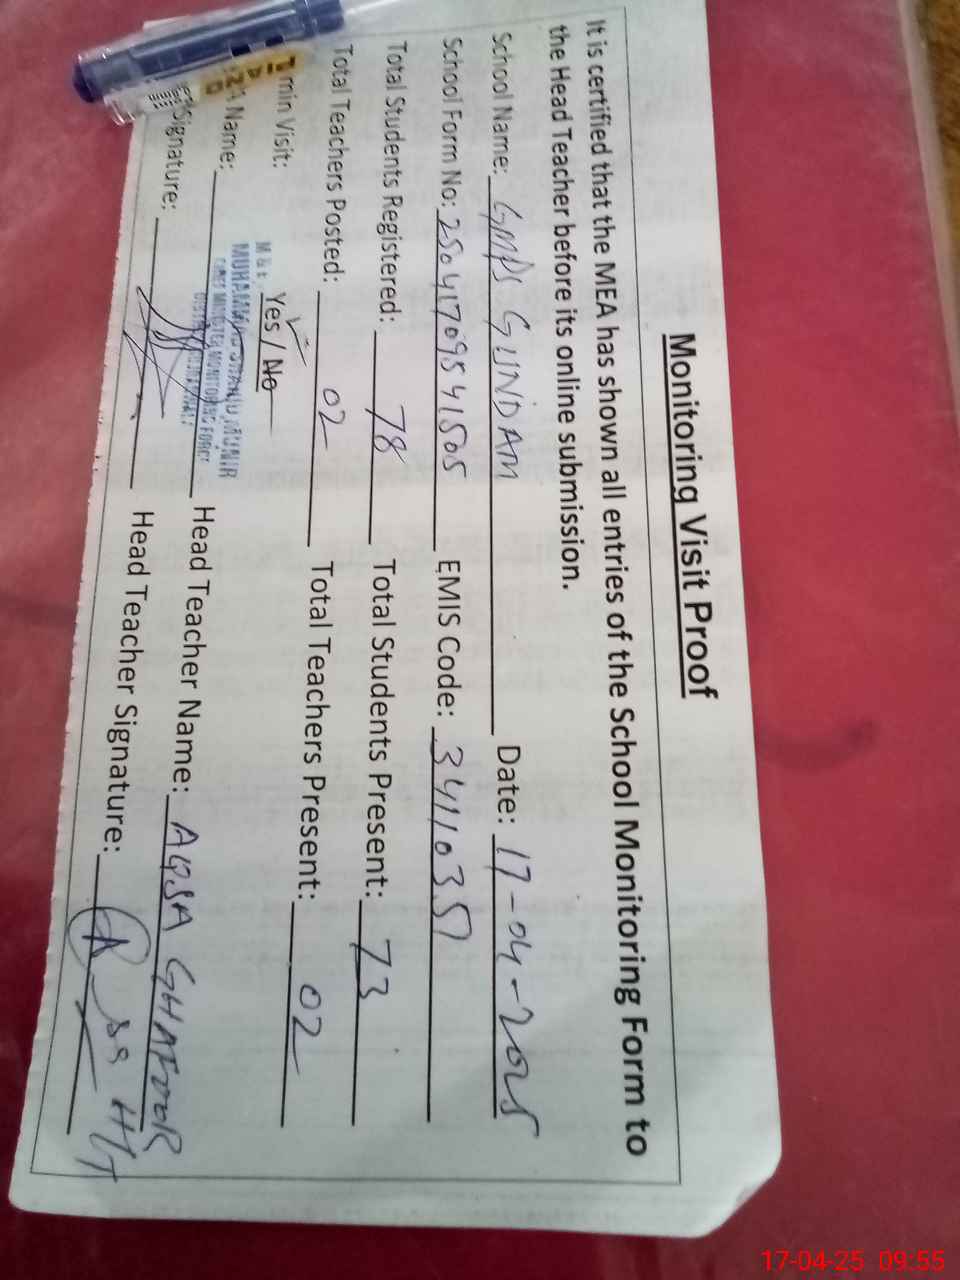 Monitoring Visit Proof
It is certified that the MEA has shown all entries of the School Monitoring Form to
the Head Teacher before its online submission.
School Name: GMPS GUNDAM Date: 17-04-2025
School Form No: 25041709541505 EMIS Code: 34110357
Total Students Registered: 78 Total Students Present: 73
Total Teachers Posted: 02 Total Teachers Present: 02
min Visit: Yes / No
Name: Head Teacher Name: AQSA GHAFOOR
MUHAMMAD MUNIR
CHIEF MINISTER MONITORING FORCE
Signature: Head Teacher Signature:
17-04-25 09:55